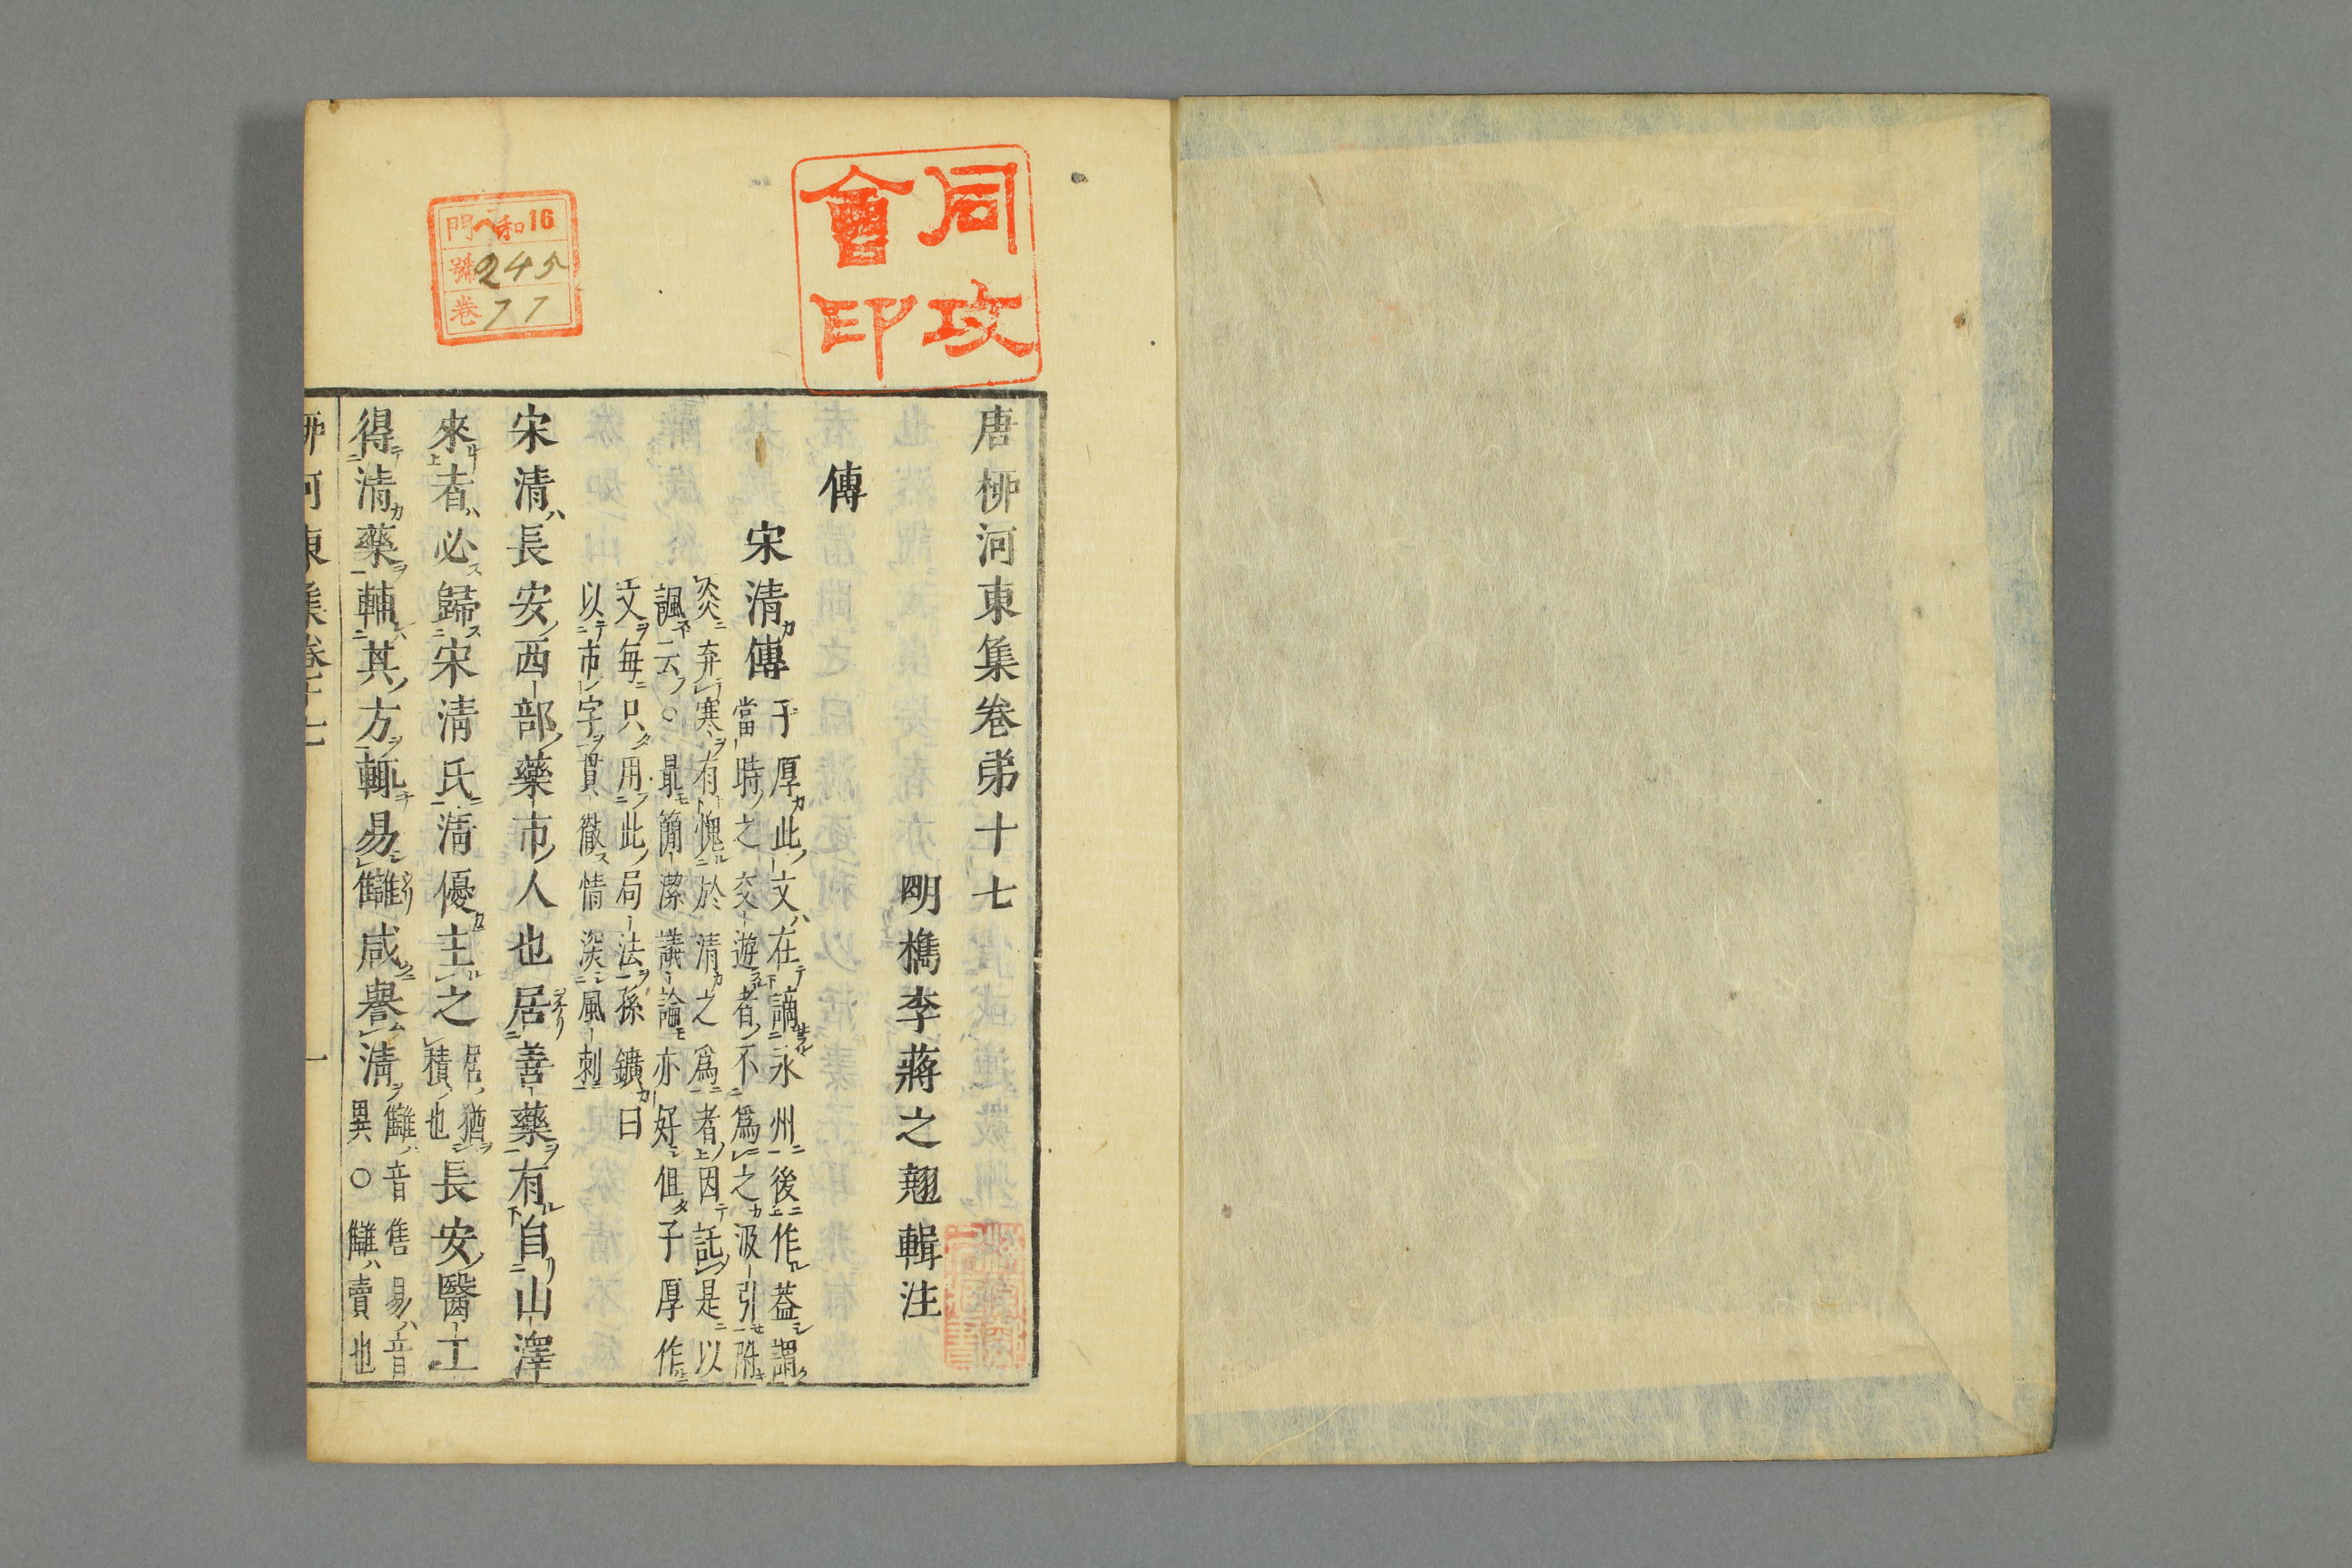 同攷
會印
和16
門 ヘ
號 245
卷 77
唐柳河東集卷第十七
明檇李蔣之翹輯注
傳
宋清傳
子厚此文在謫永州後作蓋謂
當時之交遊者不爲之汲引附
炎弃寒有愧於清之爲者因託是以
諷云○最簡潔議論亦好但子厚作
文每只用此局法孫鑛曰
以市字貫徹情深風刺
宋清長安西部藥市人也居善藥有自山澤
來者必歸宋清氏清優主之居猶積也長安醫工
得清藥輔其方輒易讎咸譽清讎音售易音異○讎賣也
柳河東集卷十七
一